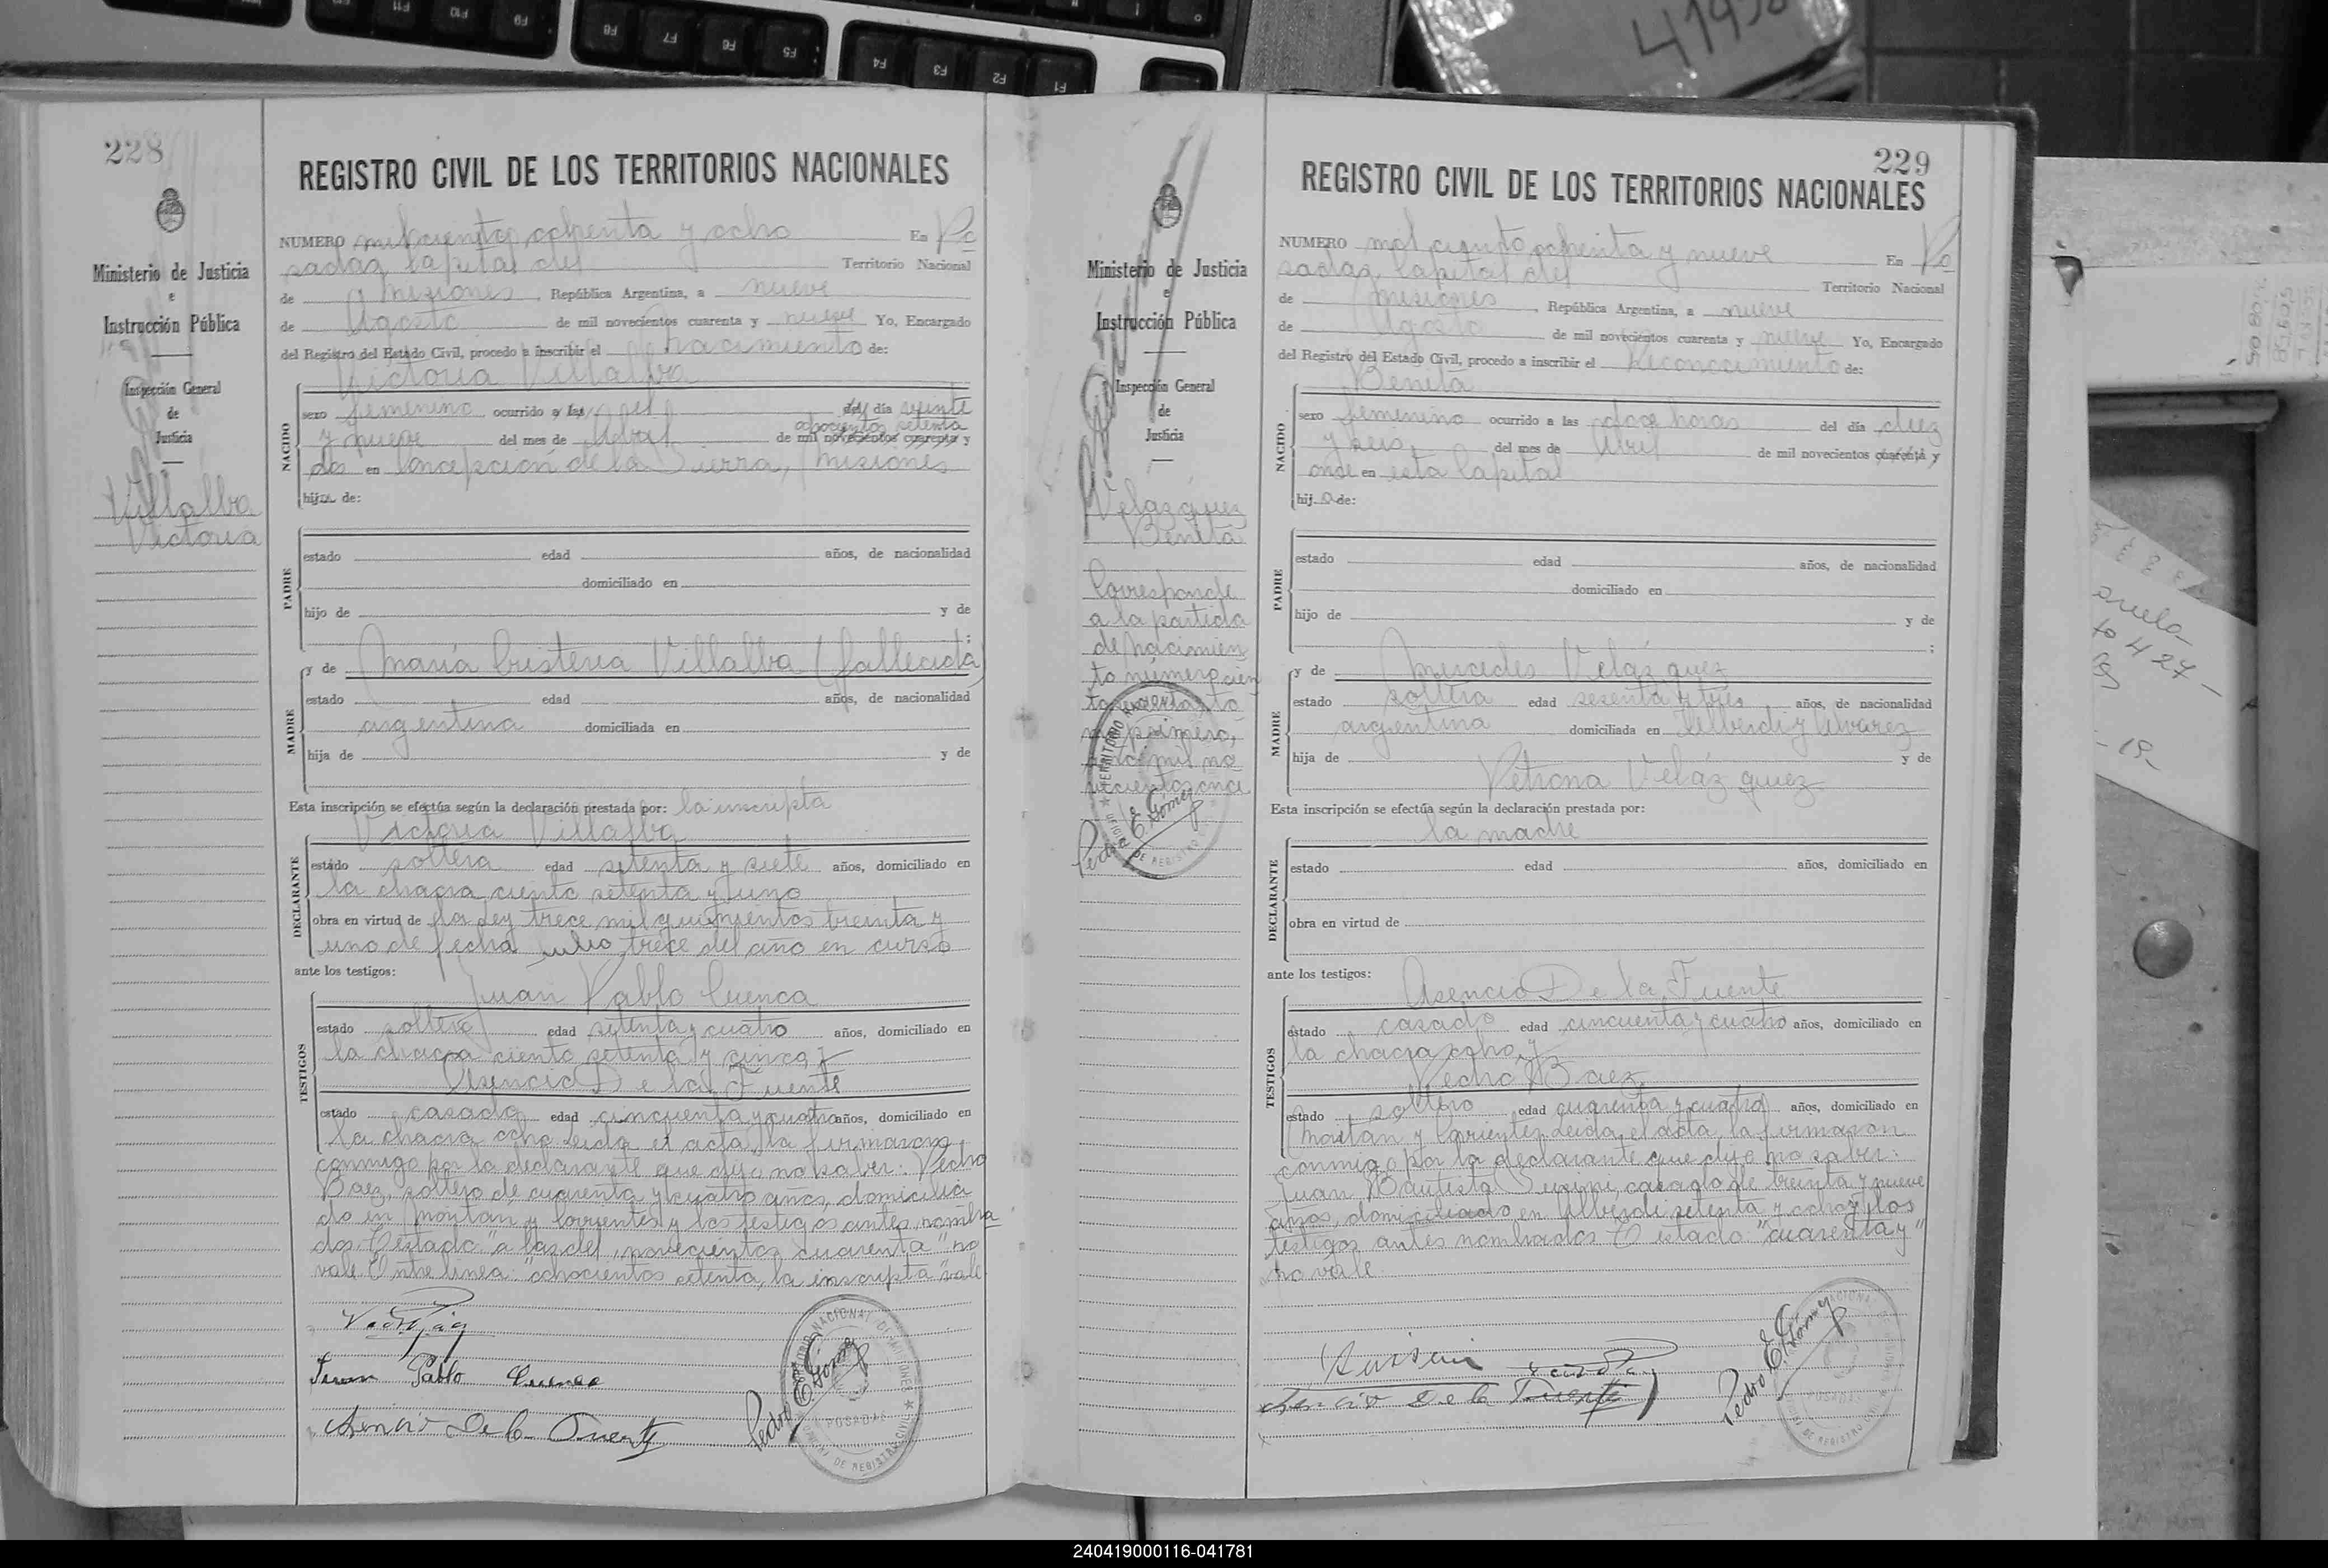 228
REGISTRO CIVIL DE LOS TERRITORIOS NACIONALES
Ministerio de Justicia
e
Instrucción Pública
Inspección General
de
Justicia
Villalba
Victoria
NUMERO mil ciento ochenta y ocho En Po
sadas, Capital del Territorio Nacional
de Misiones, República Argentina, a nueve
de Agosto de mil novecientos cuarenta y nueve Yo, Encargado
del Registro del Estado Civil, procedo a inscribir el nacimiento de:
Victoria Villalba
NACIDO
sexo femenino ocurrido a las del del día veinte
ochocientos setenta
y nueve del mes de Abril de mil novecientos cuarenta y
dos en Concepción de la Sierra, Misiones
hija de:
PADRE
estado edad años, de nacionalidad
domiciliado en
hijo de y de
;
MADRE
y de María Cristeria Villalba (fallecida)
estado edad años, de nacionalidad
argentina domiciliada en
hija de y de
Esta inscripción se efectúa según la declaración prestada por: la inscripta
Victoria Villalba
DECLARANTE
estado soltera edad setenta y siete años, domiciliado en
la chacra ciento setenta y uno
obra en virtud de la Ley trece mil quinientos treinta y
uno de fecha julio trece del año en curso
ante los testigos:
Juan Pablo Cuenca
TESTIGOS
estado soltero edad setenta y cuatro años, domiciliado en
la chacra ciento setenta y cinco, y
Asencio De la Fuente
estado casado edad cincuenta y cuatro años, domiciliado en
la chacra ocho. Leida el acta, la firmaron
conmigo por la declarante que dijo no saber: Pedro
Baez, soltero de cuarenta y cuatro años, domicilia
do en Moritan y Corrientes y los testigos antes nombra
dos. Testado "a las del, novecientos cuarenta" no
vale. Entre linea: "ochocientos setenta, la inscripta" vale.
Juan Pablo Cuenca
Asencio De la Fuente
Pedro E. Gómez
POSADAS
229
REGISTRO CIVIL DE LOS TERRITORIOS NACIONALES
Ministerio de Justicia
e
Instrucción Pública
Inspección General
de
Justicia
Velazquez
Benita
Corresponde
a la partida
de nacimien
to número cien
mo primero,
año mil no
vecientos once
Pedro E. Gómez
NUMERO mil ciento ochenta y nueve En Po
sadas, Capital del Territorio Nacional
de Misiones, República Argentina, a nueve
de Agosto de mil novecientos cuarenta y nueve Yo, Encargado
del Registro del Estado Civil, procedo a inscribir el Reconocimiento de:
Benita
NACIDO
sexo femenino ocurrido a las doce horas del día diez
y seis del mes de Abril de mil novecientos cuarenta y
once en esta Capital
hija de:
PADRE
estado edad años, de nacionalidad
domiciliado en
hijo de y de
;
MADRE
y de Mercedes Velázquez
estado soltera edad sesenta y tres años, de nacionalidad
argentina domiciliada en Alberdi y Alvarez
hija de y de
Petrona Velázquez
Esta inscripción se efectúa según la declaración prestada por:
la madre
DECLARANTE
estado edad años, domiciliado en
obra en virtud de
ante los testigos:
Asencio De la Fuente
TESTIGOS
estado casado edad cincuenta y cuatro años, domiciliado en
la chacra ocho, y
Pedro Baez
estado soltero edad cuarenta y cuatro años, domiciliado en
Moritan y Corrientes. Leida el acta, la firmaron
conmigo por la declarante que dijo no saber:
Juan Bautista casado de treinta y nueve
años, domiciliado en Alberdi setenta y ocho y los
testigos antes nombrados. Testado: "cuarenta y"
no vale.
Asencio De la Fuente
Pedro E. Gómez
POSADAS
240419000116-041781